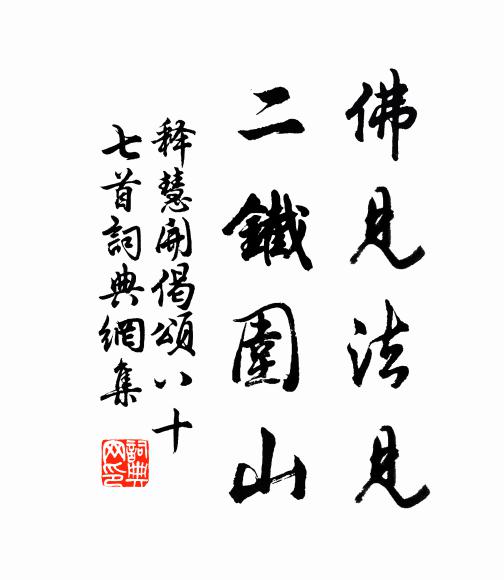 佛見法見
二鐵圍山
释慧開偈頌八十
七首詞典網集
詞典
网印